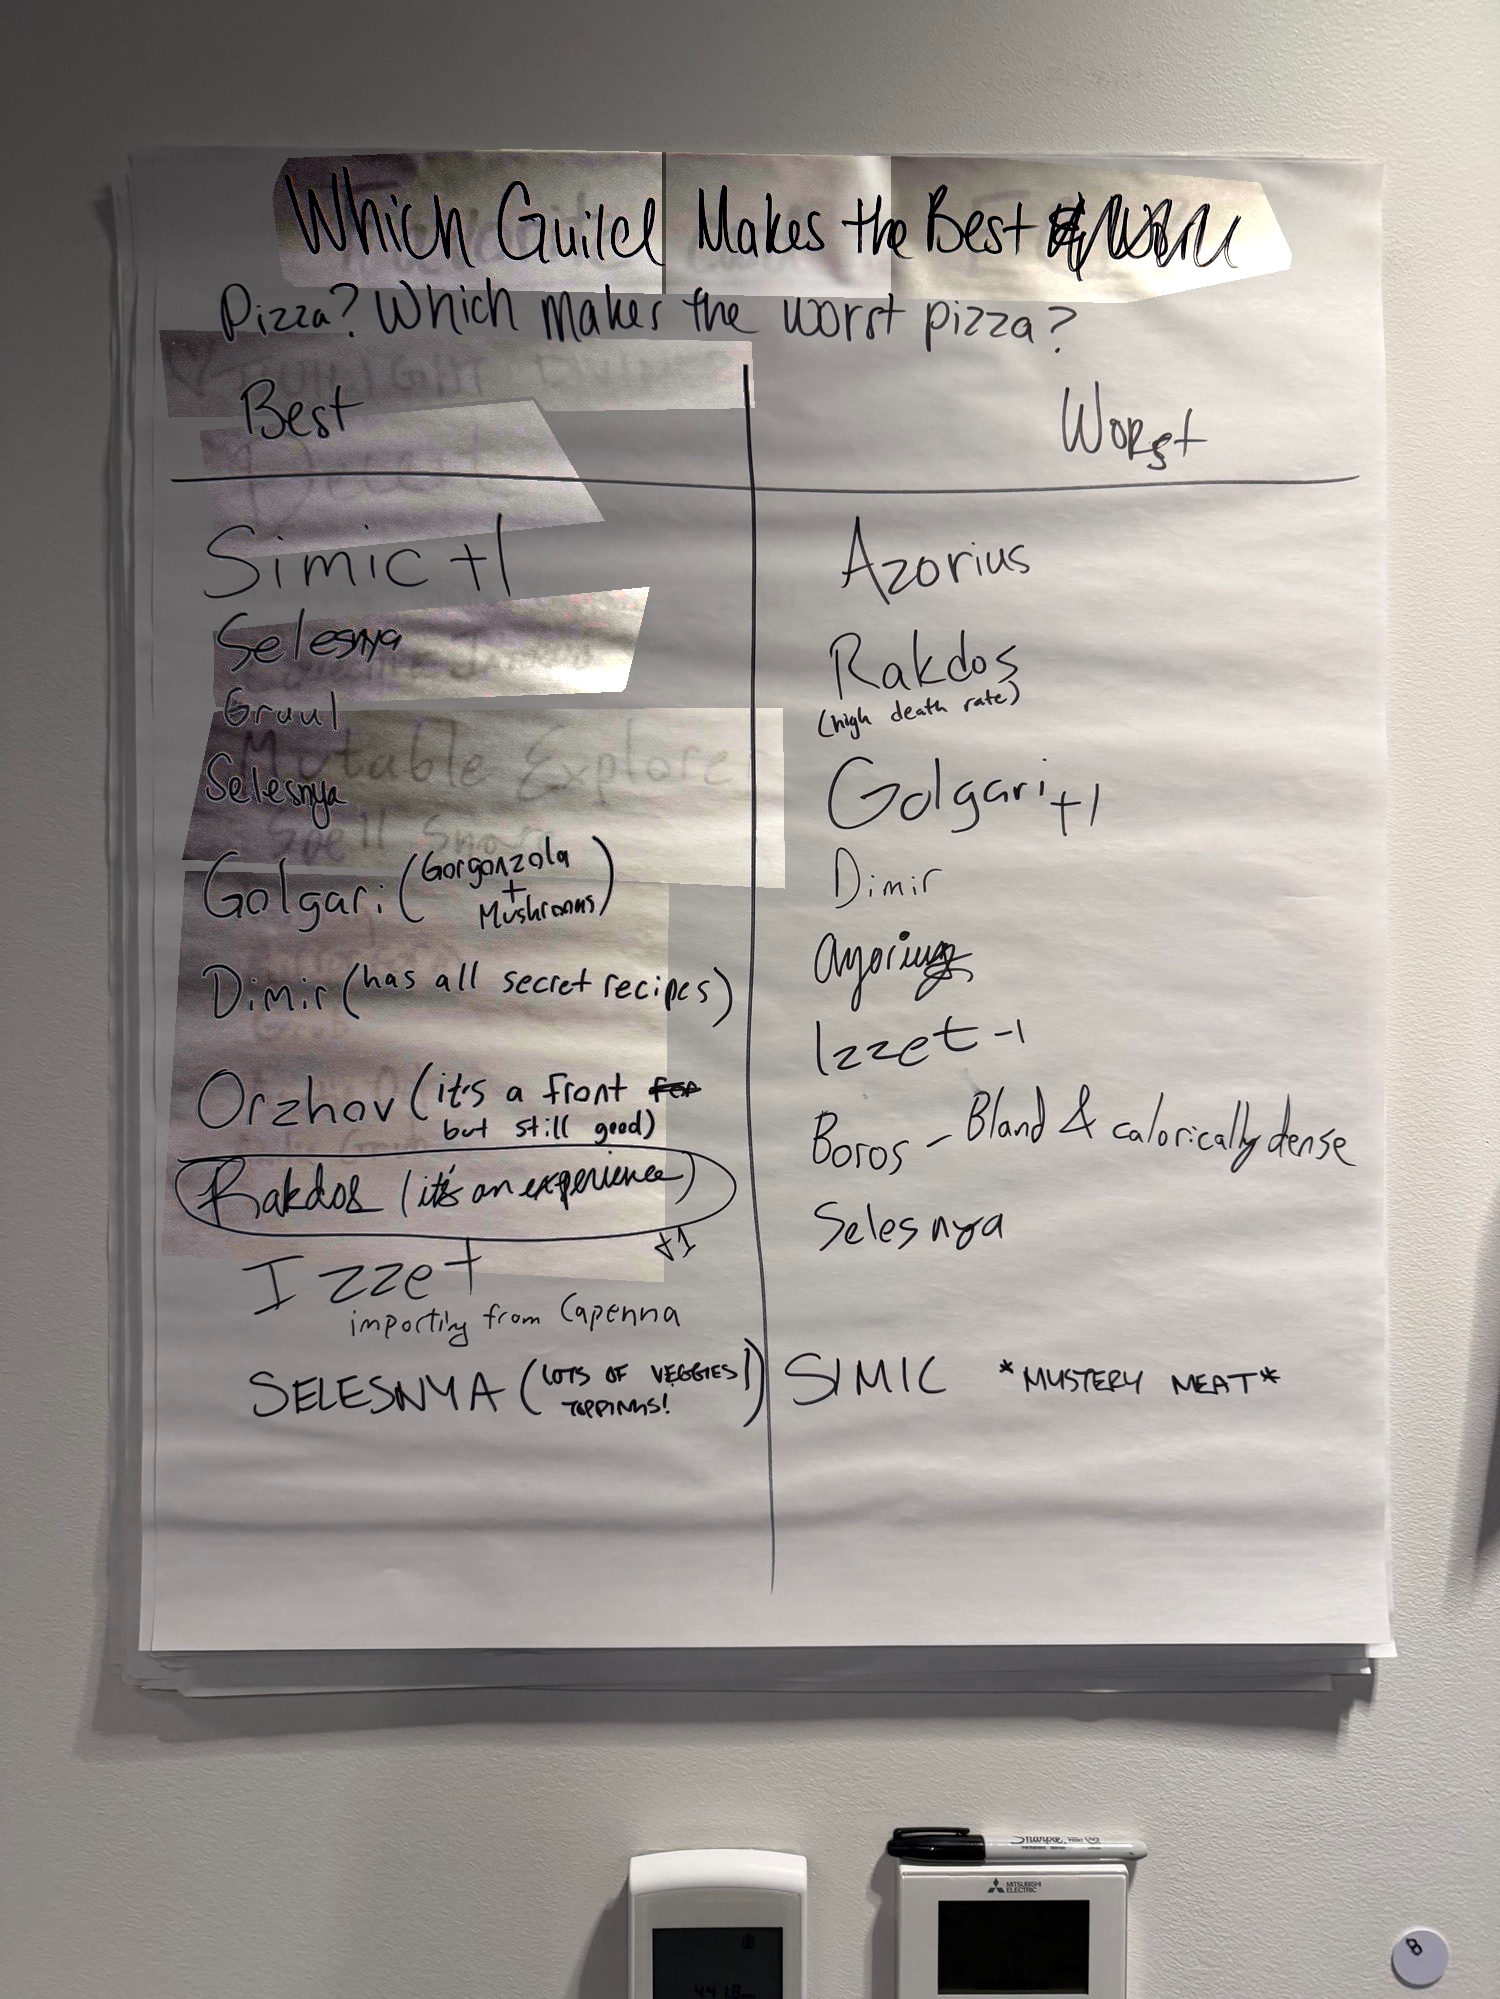 Which Guild Makes the Best
Pizza? Which makes the worst pizza?
Best
Worst
Simic +1
Selesnya
Gruul
Selesnya
Golgari (Gorgonzola
+
Mushrooms)
Dimir (has all secret recipes)
Orzhov (it's a front for
but still good)
Rakdos (it's an experience)
+1
Izzet
importing from Capenna
SELESNYA (LOTS OF VEGGIES
TOPPINGS!)
Azorius
Rakdos
(high death rate)
Golgari +1
Dimir
Azorius
Izzet -1
Boros - Bland & calorically dense
Selesnya
SIMIC *MYSTERY MEAT*
Mutable Explorer
Spell Snare
Sharpie
MITSUBISHI
ELECTRIC
B